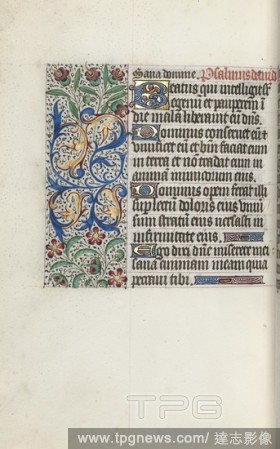 Sana domine. Psalmus david
Beatus qui intelligit
egenū et pauperem ī
die mala liberauit eū dn̄s.
Dominus conseruet eū et
uiuificet eū et bm̄ faciat eum
in terra et no tradat eum in
animā inimicorum eius.
Dominus opem ferat illi
super lectū doloris eius vniuersum
stratū eius uersasti in
infirmitate eius.
Ego dixi dn̄e miserere mei
sana animam meam quia
peccaui tibi.
TPG
www.tpgnews.com/ 達志影像